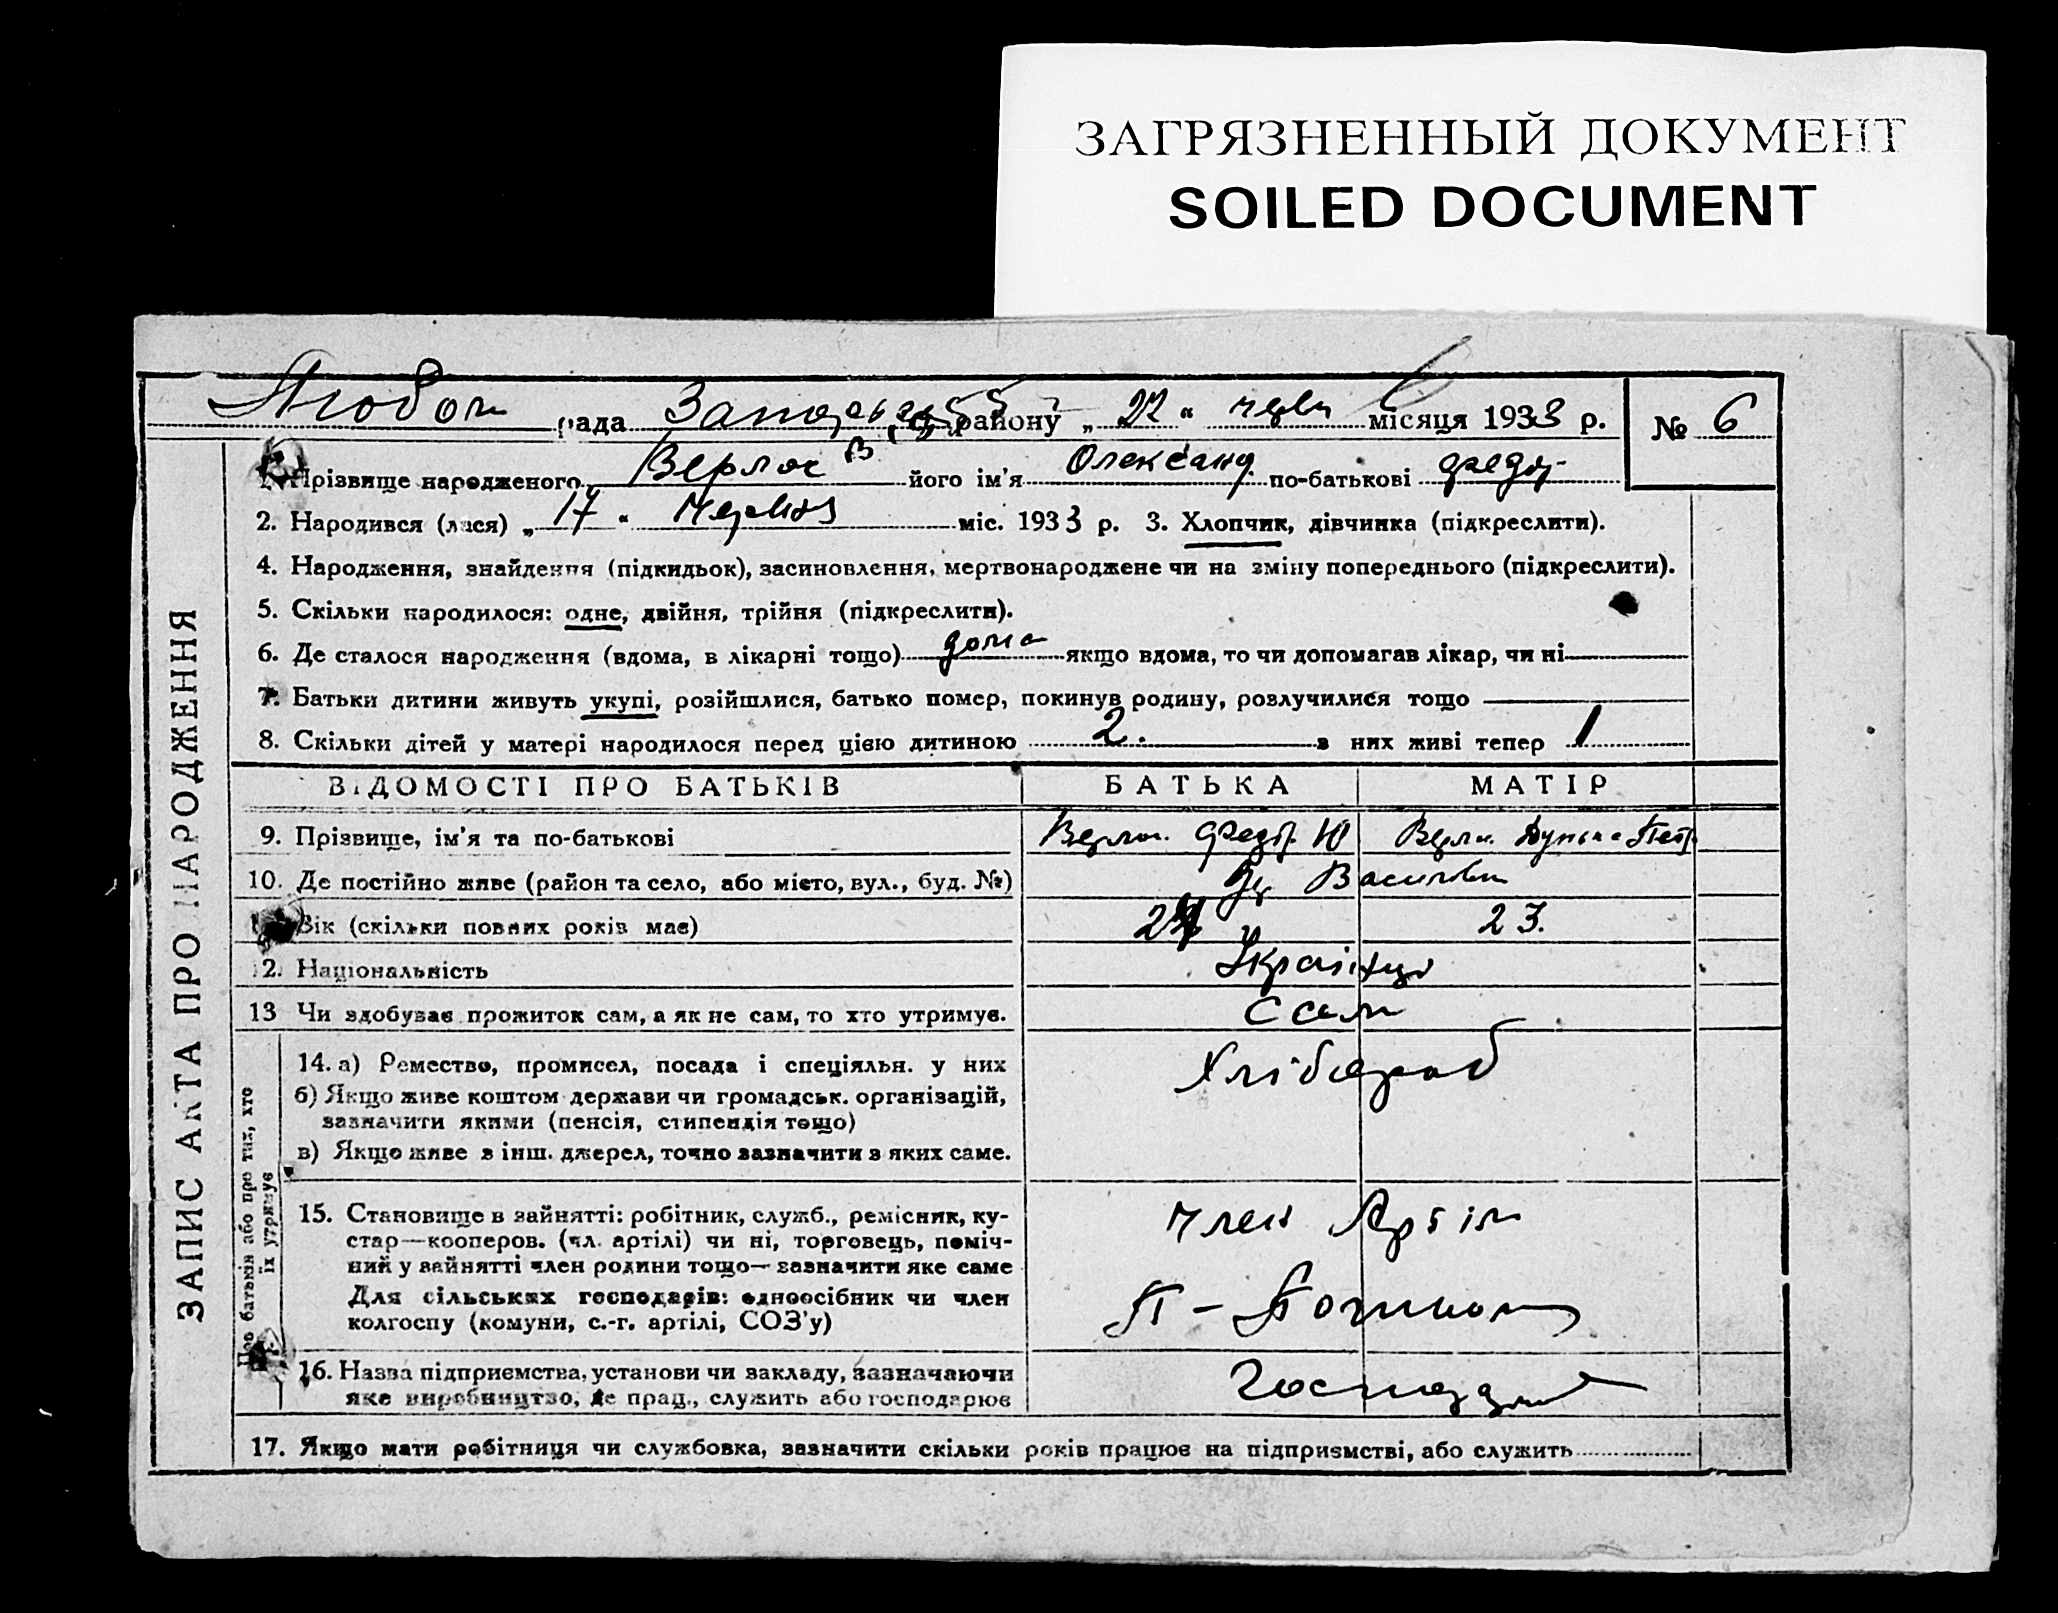 ЗАГРЯЗНЕННЫЙ ДОКУМЕНТ
SOILED DOCUMENT
рада району „22“ черв місяця 1933 р. № 6
1. Прізвище народженого його ім'я Олександ. по-батькові Федор
2. Народився (лася) „17“ червня міс. 1933 р. 3. Хлопчик, дівчинка (підкреслити).
4. Народження, знайдення (підкидьок), засиновлення, мертвонароджене чи на зміну попереднього (підкреслити).
5. Скільки народилося: одне, двійня, трійня (підкреслити).
6. Де сталося народження (вдома, в лікарні тощо) дома якщо вдома, то чи допомагав лікар, чи ні
7. Батьки дитини живуть укупі, розійшлися, батько помер, покинув родину, розлучилися тощо
8. Скільки дітей у матері народилося перед цією дитиною 2. з них живі тепер 1
ВІДОМОСТІ ПРО БАТЬКІВ БАТЬКА МАТІР
9. Прізвище, ім'я та по-батькові
10. Де постійно живе (район та село, або місто, вул., буд. №)
Вік (скільки повних років має) 23.
12. Національність Українці
13 Чи здобуває прожиток сам, а як не сам, то хто утримує. Сам
14. а) Ремество, промисел, посада і спеціяльн. у них Хлібороб
б) Якщо живе коштом держави чи громадськ. організацій,
зазначити якими (пенсія, стипендія тощо)
в) Якщо живе з інш. джерел, точно зазначити з яких саме.
15. Становище в зайнятті: робітник, служб., ремісник, ку-
стар—кооперов. (чл. артілі) чи ні, торговець, поміч-
ний у зайнятті член родини тощо—зазначити яке саме
Для сільських господарів: одноосібник чи член
колгоспу (комуни, с.-г. артілі, СОЗ'у)
член Артіл
16. Назва підприємства, установи чи закладу, зазначаючи
яке виробництво, де прац., служить або господарює
17. Якщо мати робітниця чи службовка, зазначити скільки років працює на підприємстві, або служить
ЗАПИС АКТА ПРО НАРОДЖЕННЯ
Про батьків або про тих, хто
їх утримує